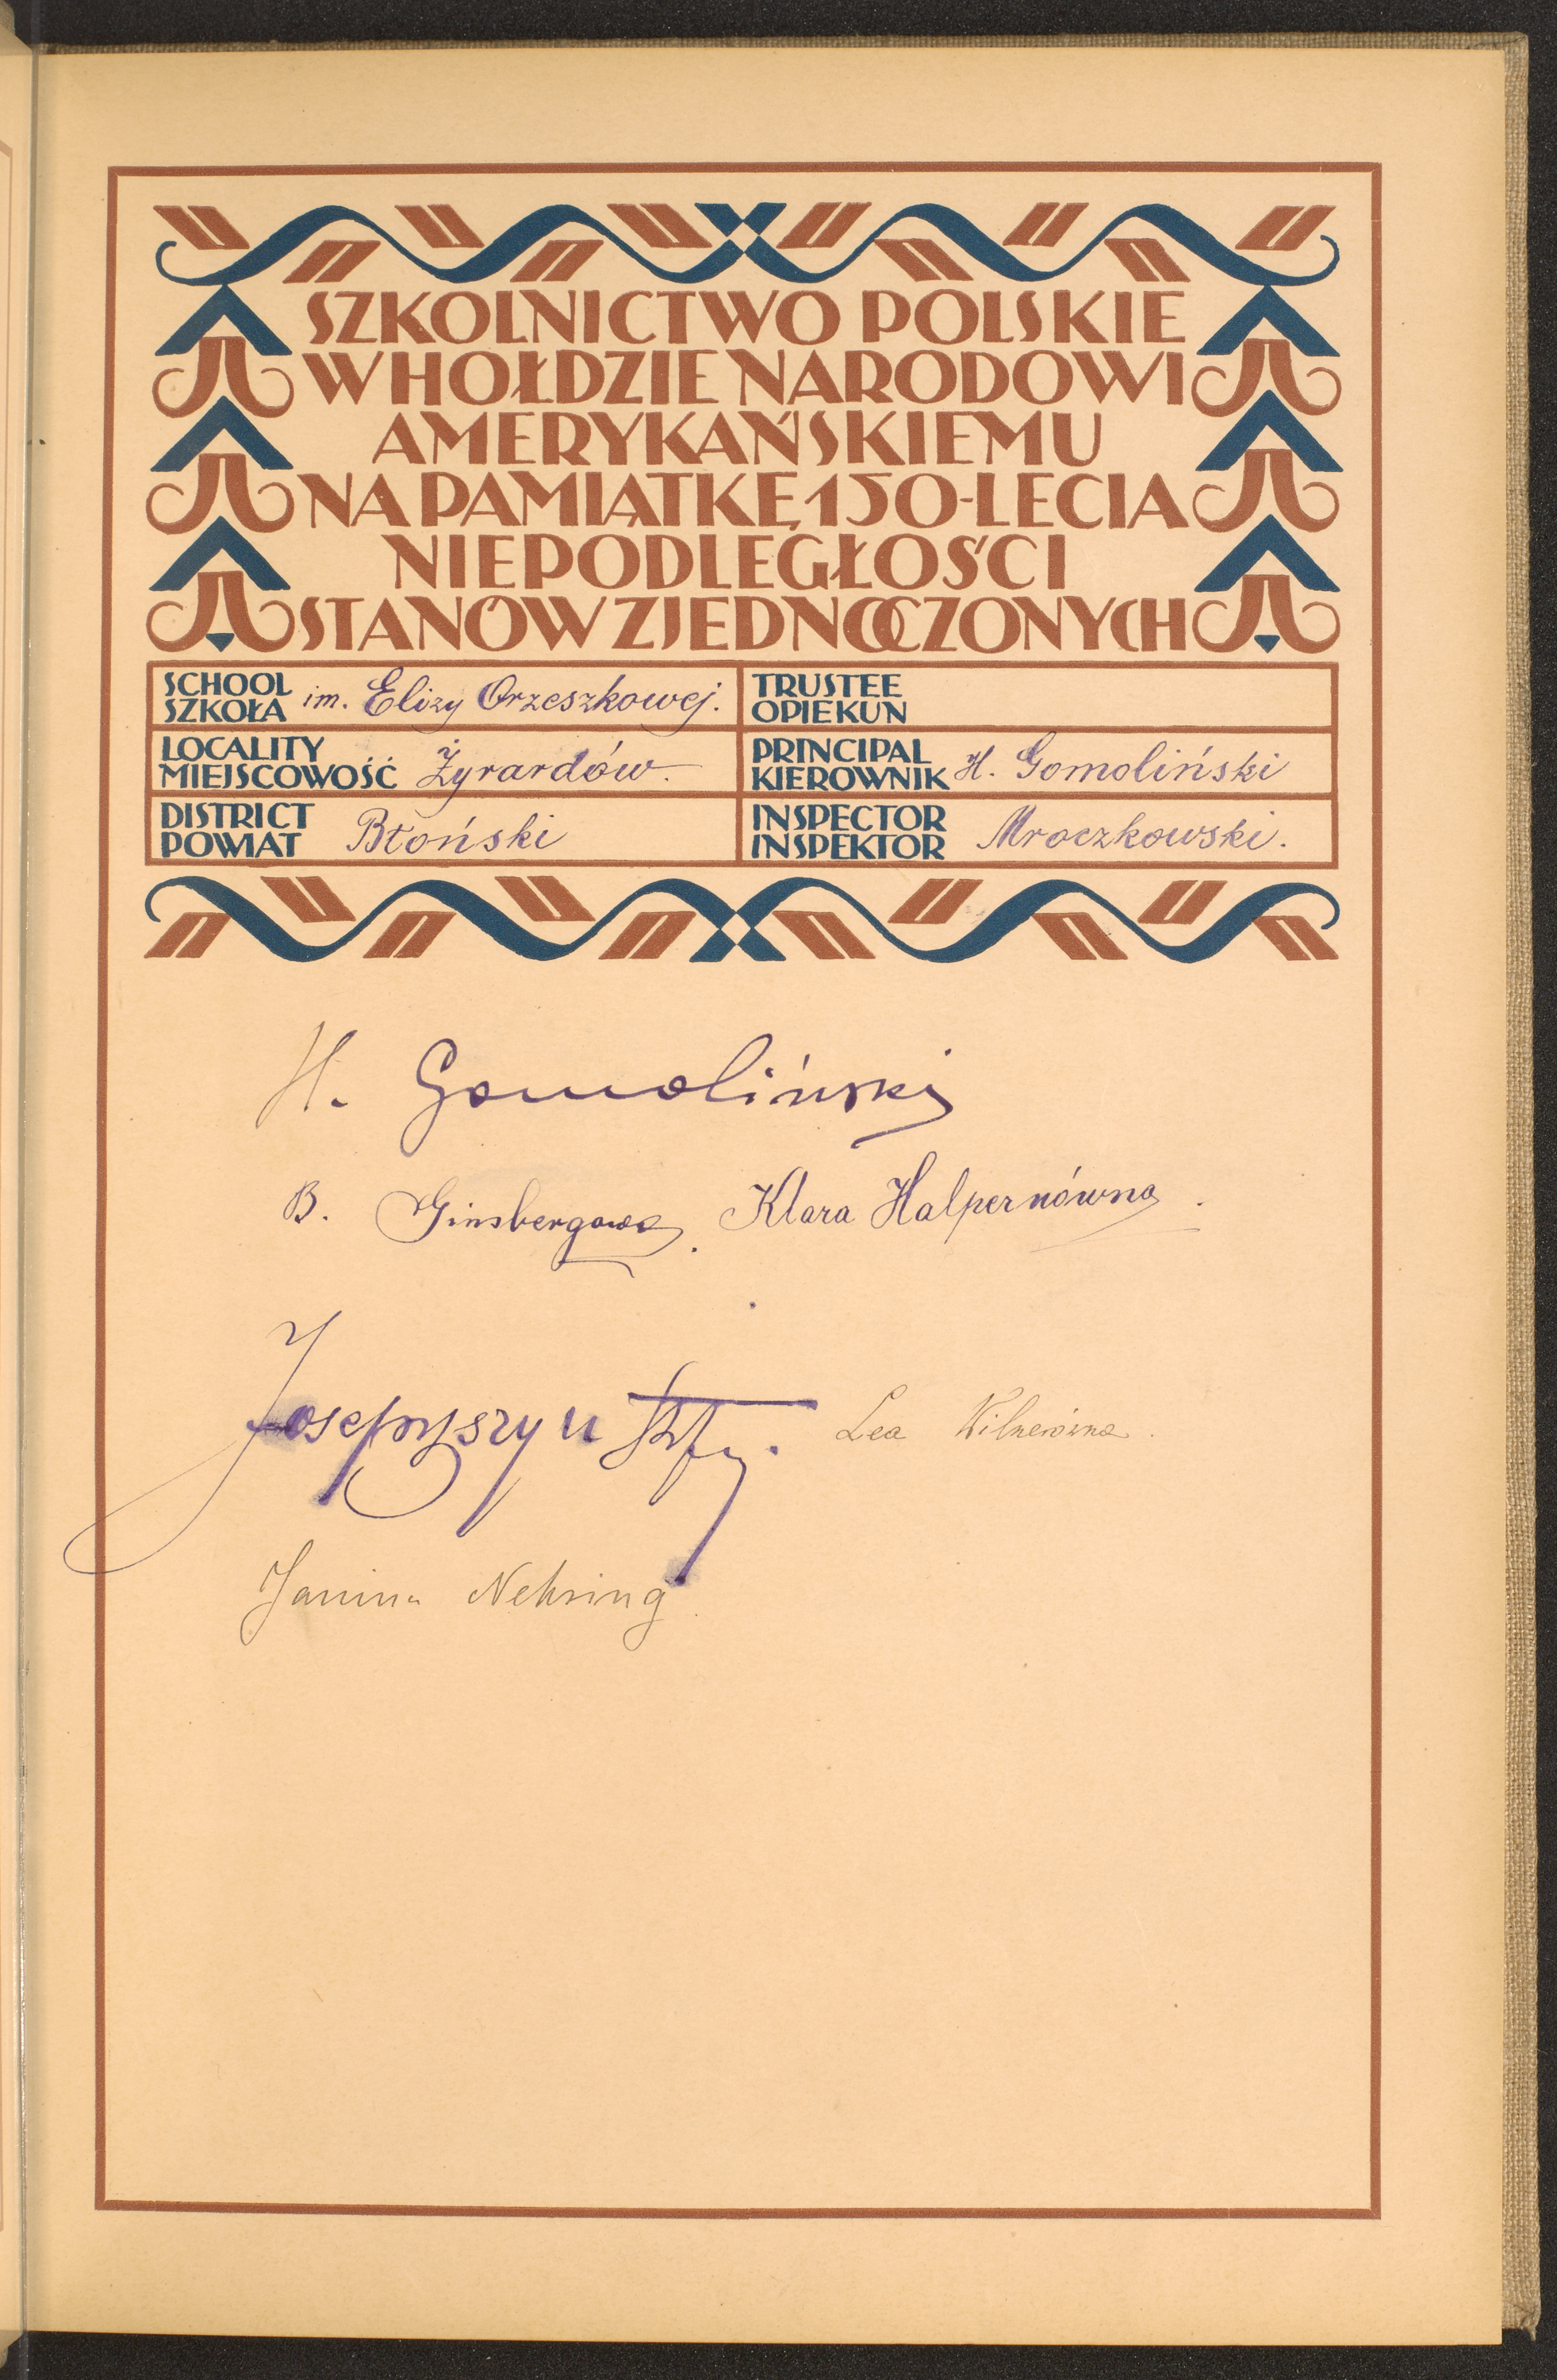 SZKOLNICTWO POLSKIE
W HOŁDZIE NARODOWI
AMERYKAŃSKIEMU
NA PAMIĄTKĘ 150-LECIA
NIEPODLEGŁOŚCI
STANÓW ZJEDNOCZONYCH
SCHOOL
SZKOŁA im. Elizy Orzeszkowej.
TRUSTEE
OPIEKUN
LOCALITY
MIEJSCOWOŚĆ Żyrardów.
PRINCIPAL
KIEROWNIK H. Gomoliński
DISTRICT
POWIAT Błoński
INSPECTOR
INSPEKTOR Mroczkowski.
H. Gomoliński
B. Ginsbergowa. Klara Halpernówna.
Lea Wilnerówna.
Janina Nehring